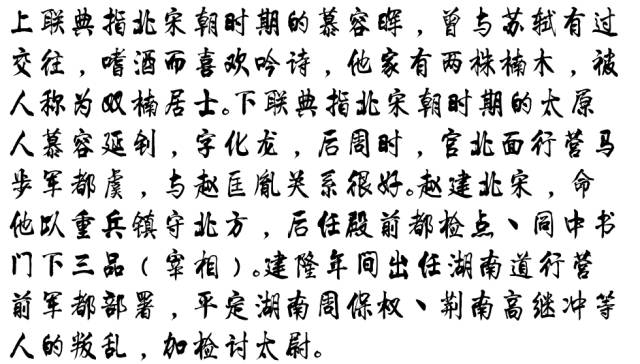 上联典指北宋朝时期的慕容晖，曾与苏轼有过
交往，嗜酒而喜欢吟诗，他家有两株楠木，被
人称为双楠居士。下联典指北宋朝时期的太原
人慕容延钊，字化龙，后周时，官北面行营马
步军都虞，与赵匡胤关系很好。赵建北宋，命
他以重兵镇守北方，后任殿前都检点、同中书
门下三品（宰相）。建隆年间出任湖南道行营
前军都部署，平定湖南周保权、荆南高继冲等
人的叛乱，加检讨太尉。